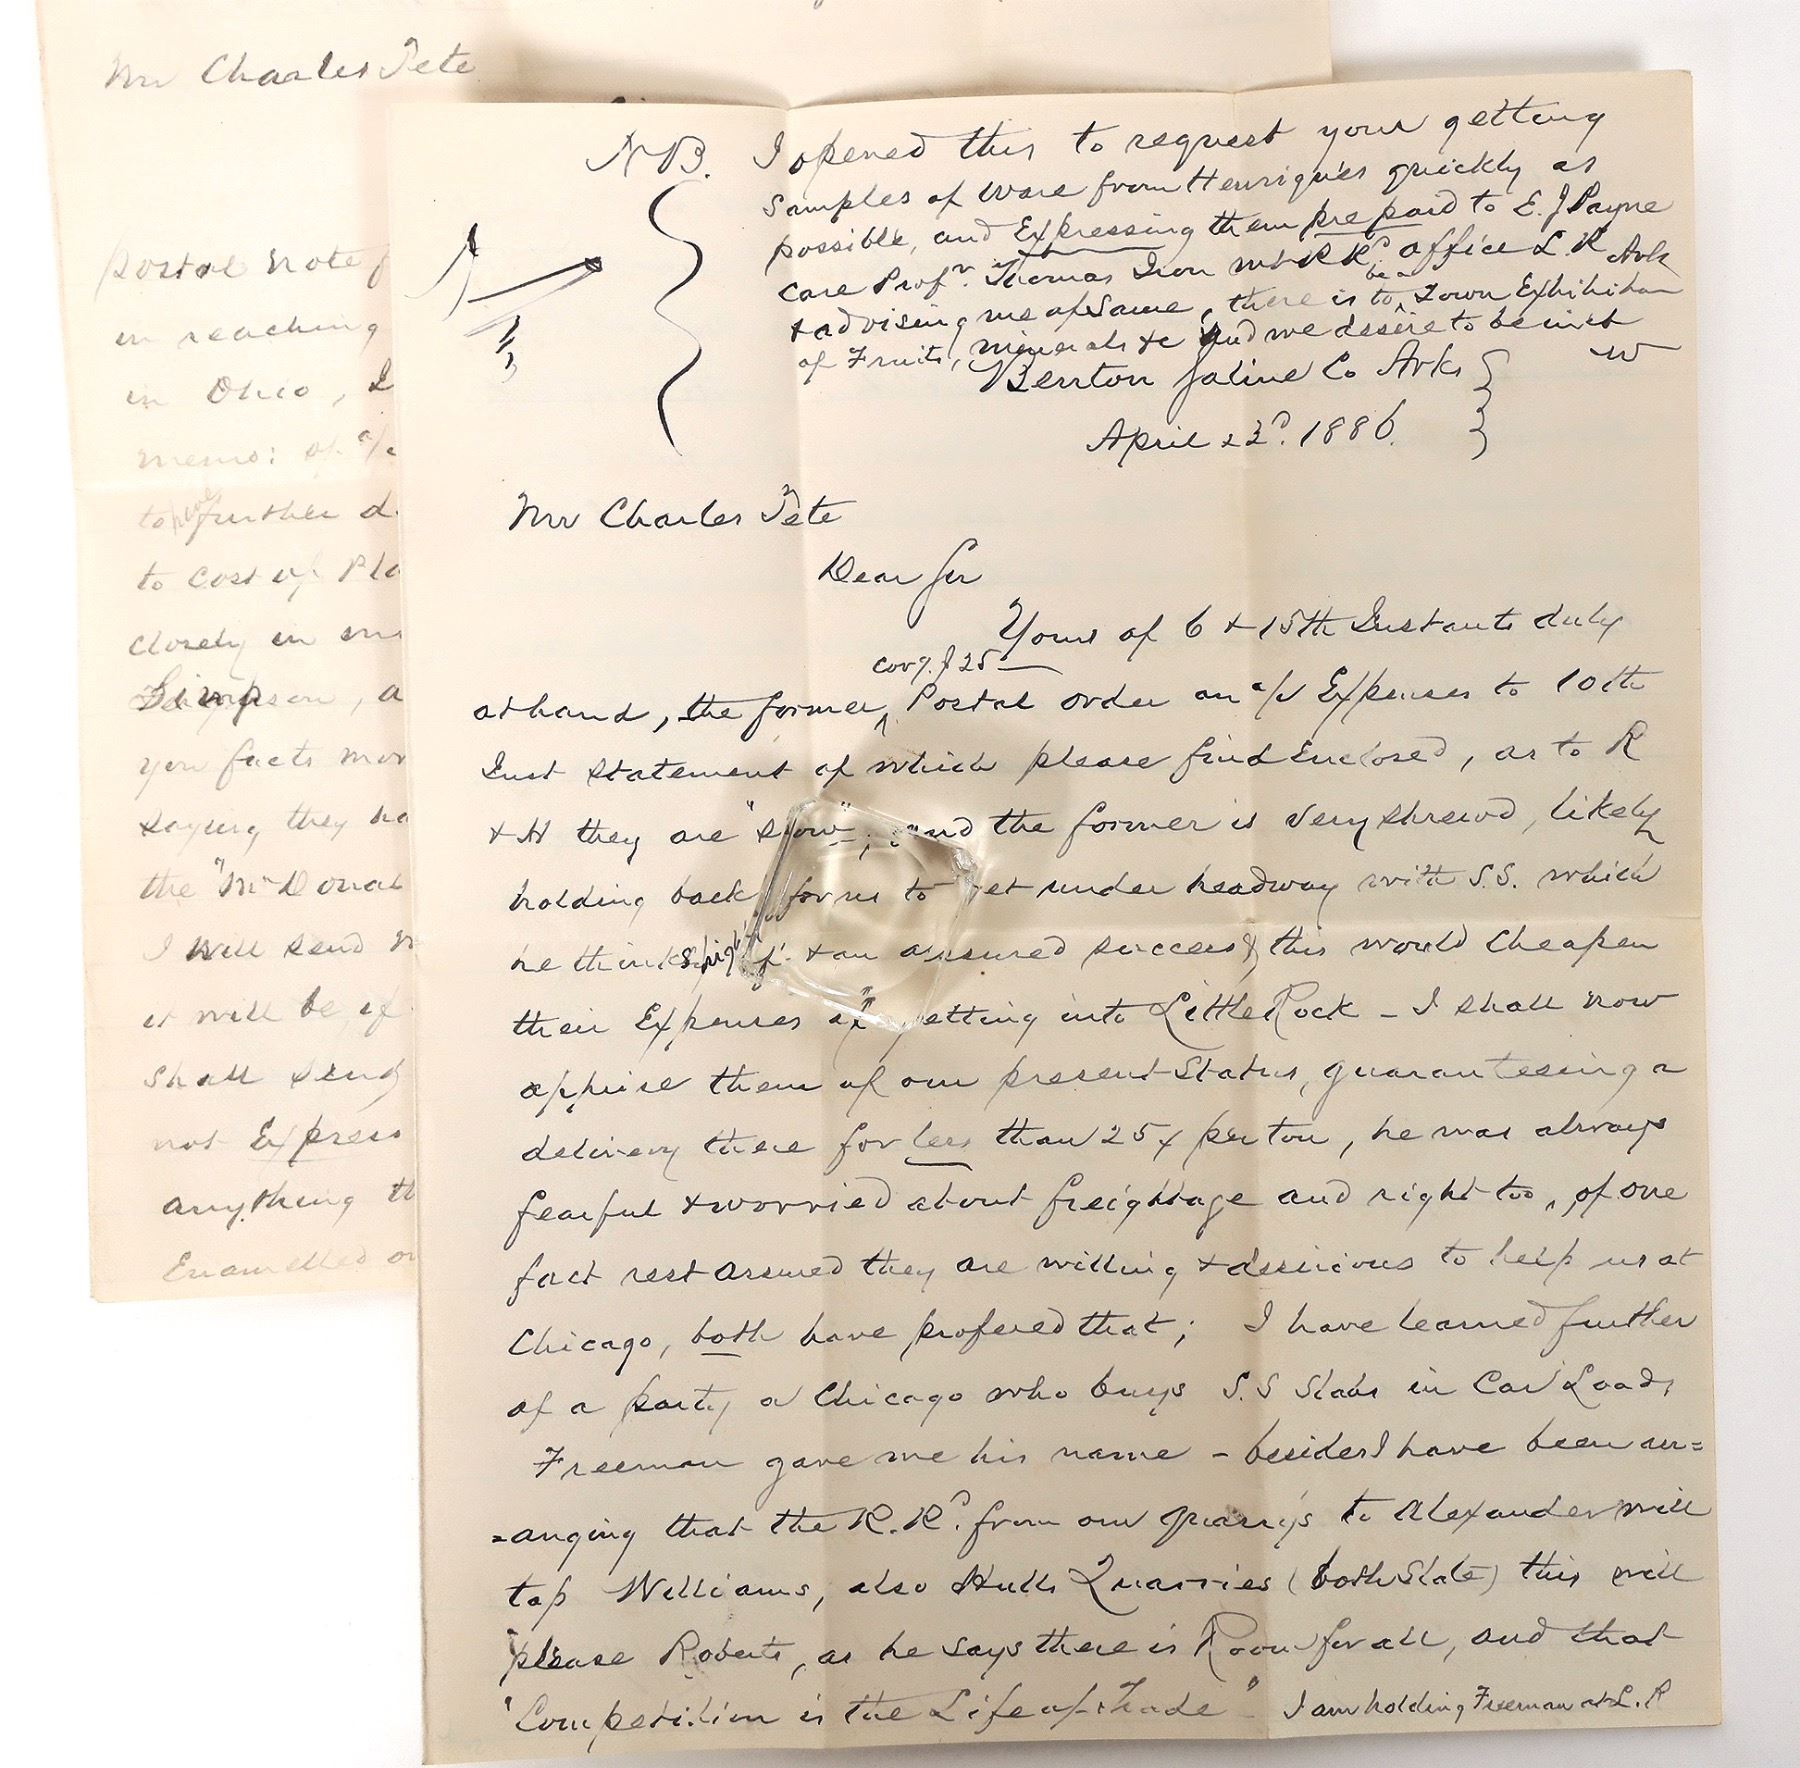 Mr Charles Tete
postal note
in reaching
in Ohio, I
memo: of a/c
to further d
to cost of Pla
closely in
Simpson, a
you facts mor
saying they ha
the "McDonal
I will send
it will be if
shall send
not Express
anything th
Enamelled or
NB. I opened this to request your getting
samples of ware from Henriques quickly as
possible, and Expressing them prepaid to E. J Payne
care Profr. Thomas Iron Mt RRd. office L. R Ark
& advising me of same, there is to be a Town Exhibition
of Fruits, minerals &c and we desire to be in it
W
Benton Saline Co Arks
April 23d. 1886.
Mr Charles Tete
Dear Sir
Yours of 6 & 15th Instants duly
covg. $25
at hand, the former, Postal order on a/c Expenses to 10th
Inst statement of which please find Enclosed, as to R
& H they are "slow"; and the former is very shrewd, likely
holding back for us to get under headway with S.S. which
he thinks & an assured success & this would cheapen
their Expenses of getting into Little Rock - I shall now
apprise them of our present status, guaranteeing a
delivery there for less than 25¢ per ton, he was always
fearful & worried about freightage and right too, of one
fact rest assured they are willing & desirious to help us at
Chicago, both have profered that; I have learned further
of a party @ Chicago who buys S.S Slabs in Car Loads,
Freeman gave me his name - besides I have been arr=
=anging that the R.Rd. from our quarrys to Alexander will
tap Williams, also Hulls Quarries (both Slate) this will
please Roberts, as he says there is Room for all, and that
"Competition is the Life of Trade" I am holding Freeman at L. R